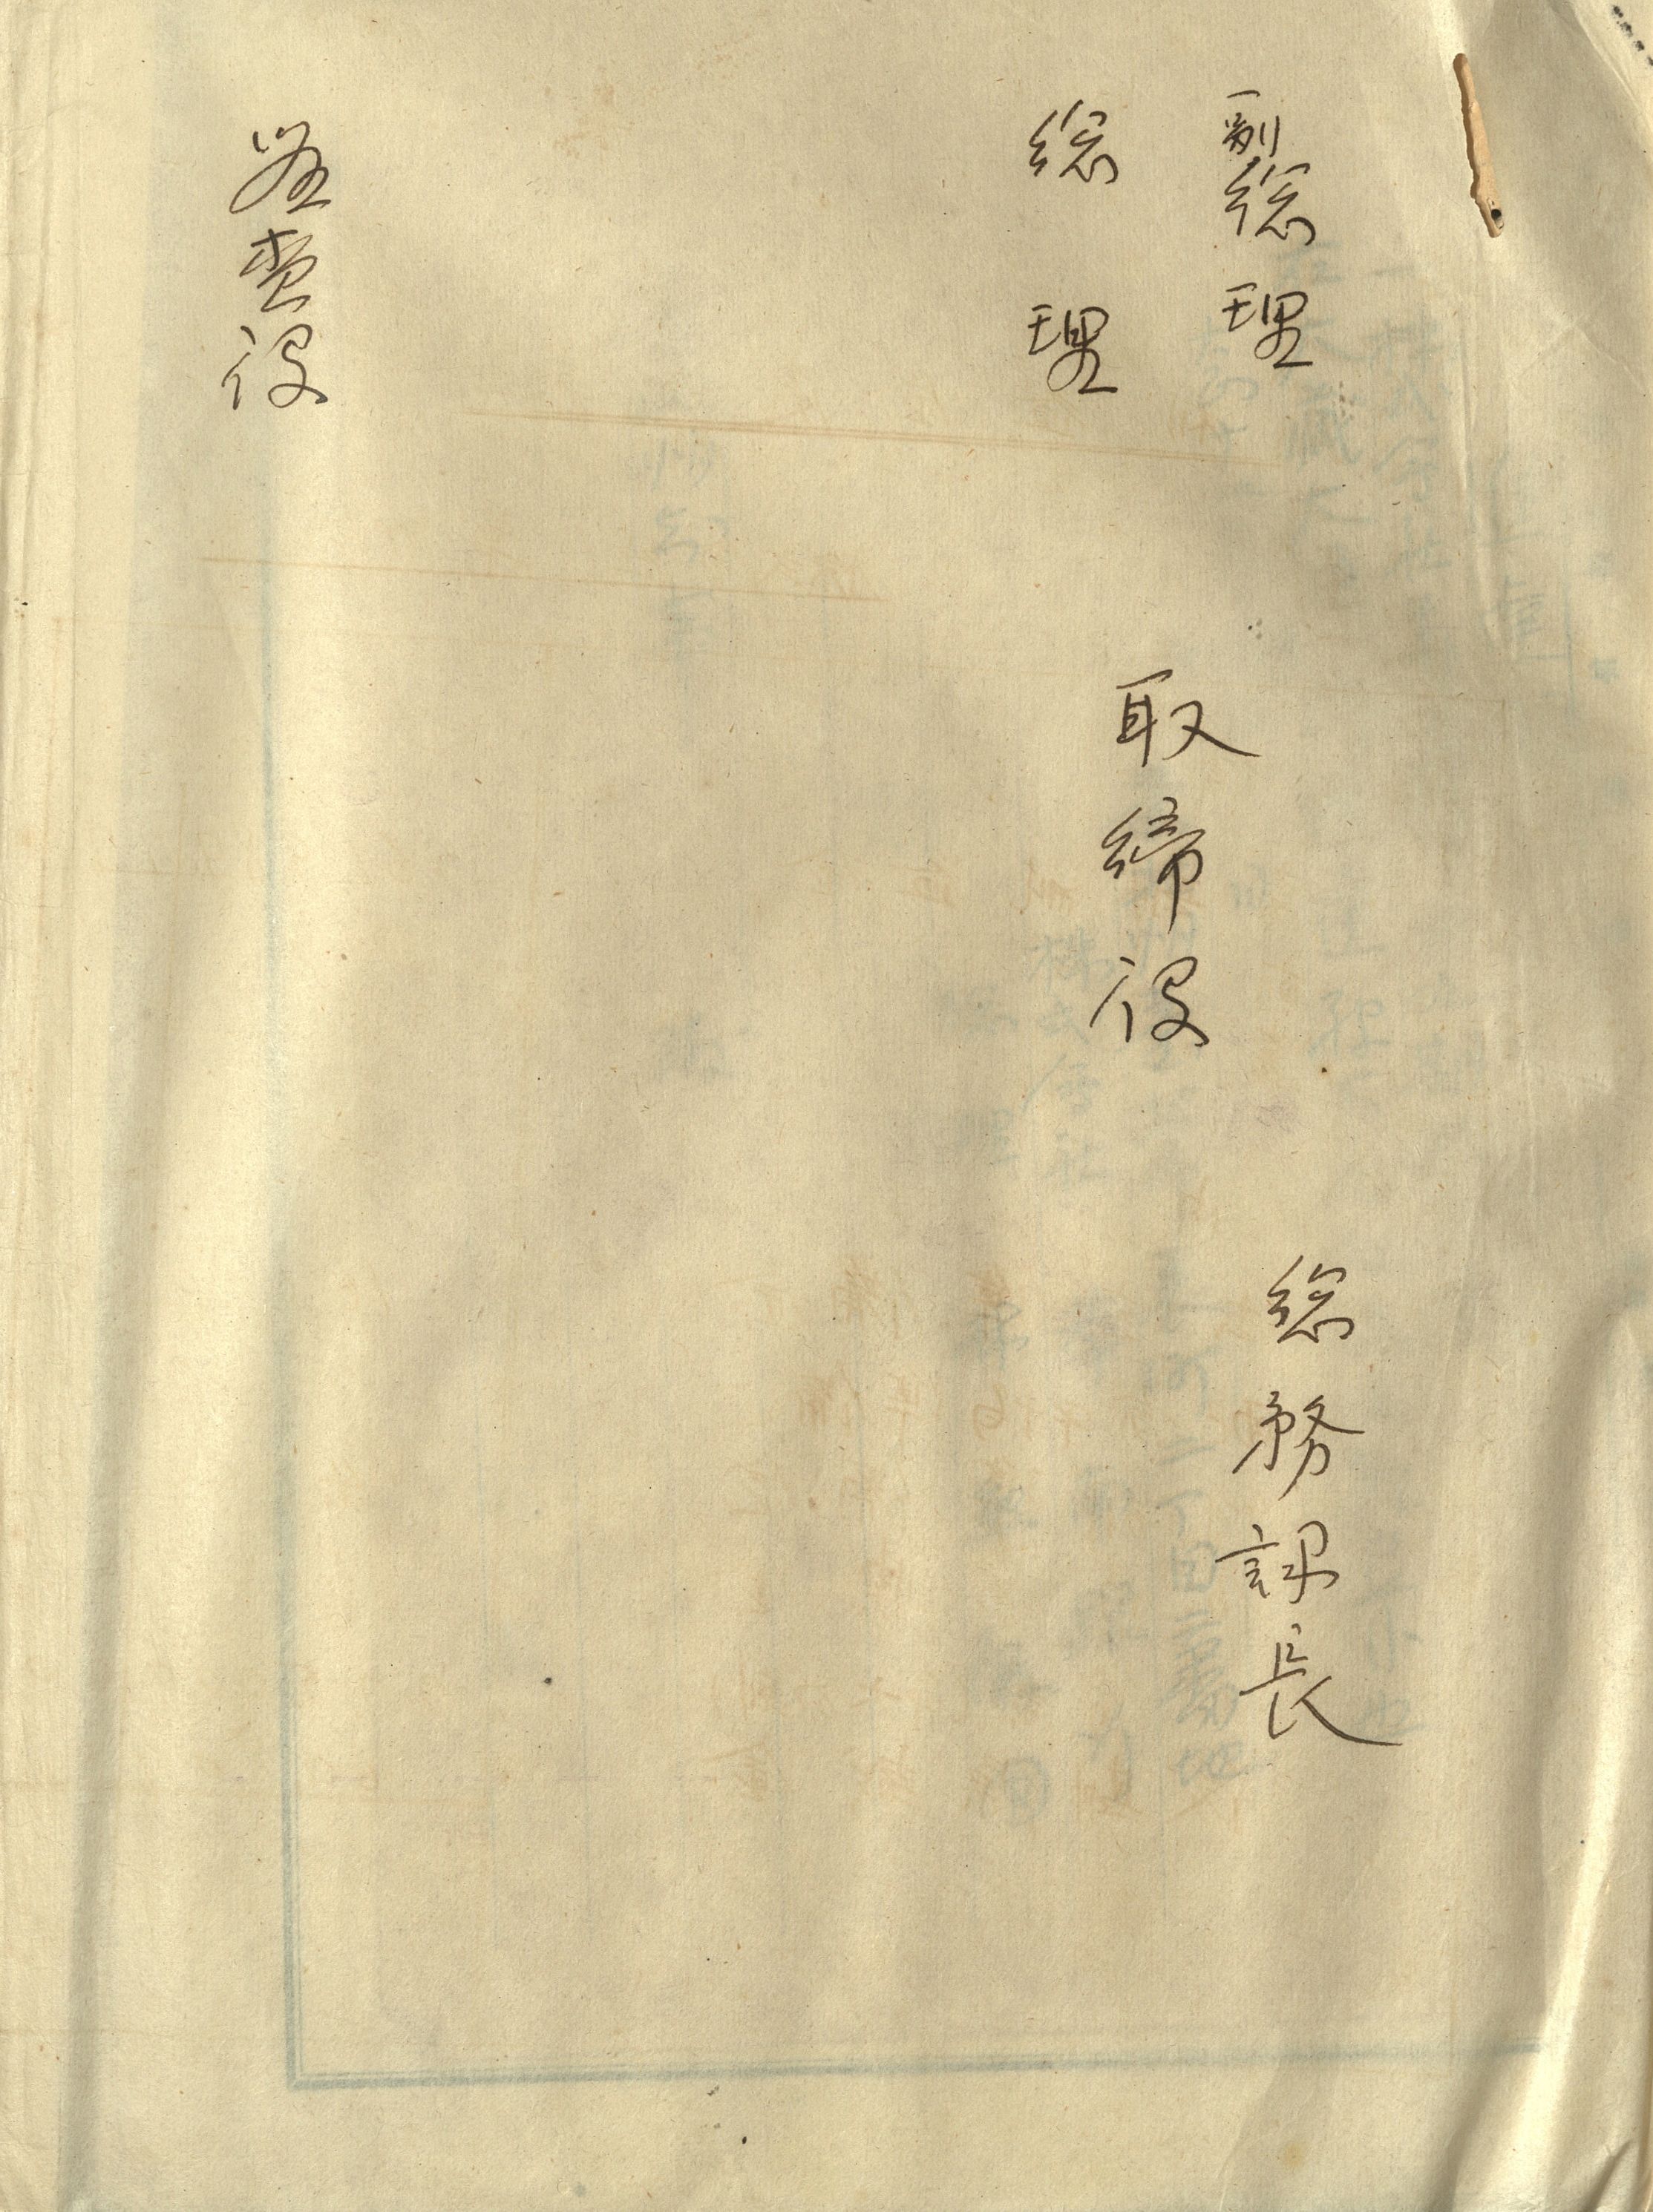 副総理
総理
取締役
総務課長
監査役